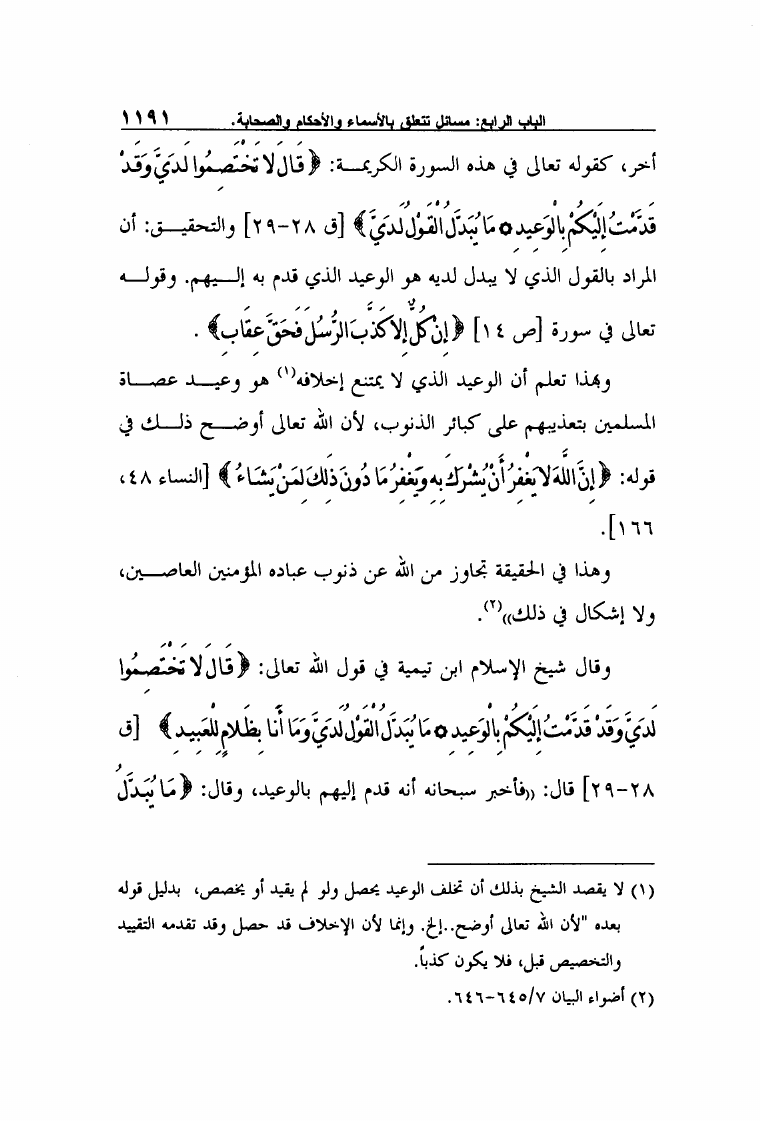 الباب الرابع: مسائل تتعلق بالأسماء والأحكام والصحابة. ١١٩١
أخر، كقوله تعالى في هذه السورة الكريمــة: ﴿ قَالَ لَا تَخْتَصِمُوا لَدَيَّ وَقَدْ
قَدَّمْتُ إِلَيْكُمْ بِالْوَعِيدِ ۝ مَا يُبَدَّلُ الْقَوْلُ لَدَيَّ ﴾ [ق ٢٨-٢٩] والتحقيــق: أن
المراد بالقول الذي لا يبدل لديه هو الوعيد الذي قدم به إلــيهم. وقولــه
تعالى في سورة [ص ١٤] ﴿ إِنْ كُلٌّ إِلَّا كَذَّبَ الرُّسُلَ فَحَقَّ عِقَابِ ﴾ .
وبهذا تعلم أن الوعيد الذي لا يمتنع إخلافه(١) هو وعيــد عصــاة
المسلمين بتعذيبهم على كبائر الذنوب، لأن الله تعالى أوضــح ذلــك في
قوله: ﴿ إِنَّ اللَّهَ لَا يَغْفِرُ أَنْ يُشْرَكَ بِهِ وَيَغْفِرُ مَا دُونَ ذَلِكَ لِمَنْ يَشَاءُ ﴾ [النساء ٤٨،
١٦٦].
وهذا في الحقيقة تجاوز من الله عن ذنوب عباده المؤمنين العاصــين،
ولا إشكال في ذلك»(٢).
وقال شيخ الإسلام ابن تيمية في قول الله تعالى: ﴿ قَالَ لَا تَخْتَصِمُوا
لَدَيَّ وَقَدْ قَدَّمْتُ إِلَيْكُمْ بِالْوَعِيدِ ۝ مَا يُبَدَّلُ الْقَوْلُ لَدَيَّ وَمَا أَنَا بِظَلَّامٍ لِلْعَبِيدِ ﴾ [ق
٢٨-٢٩] قال: «فأخبر سبحانه أنه قدم إليهم بالوعيد، وقال: ﴿ مَا يُبَدَّلُ
(١) لا يقصد الشيخ بذلك أن تخلف الوعيد يحصل ولو لم يقيد أو يخصص، بدليل قوله
بعده "لأن الله تعالى أوضح..إلخ. وإنما لأن الإخلاف قد حصل وقد تقدمه التقييد
والتخصيص قبل، فلا يكون كذباً.
(٢) أضواء البيان ٦٤٥/٧-٦٤٦.